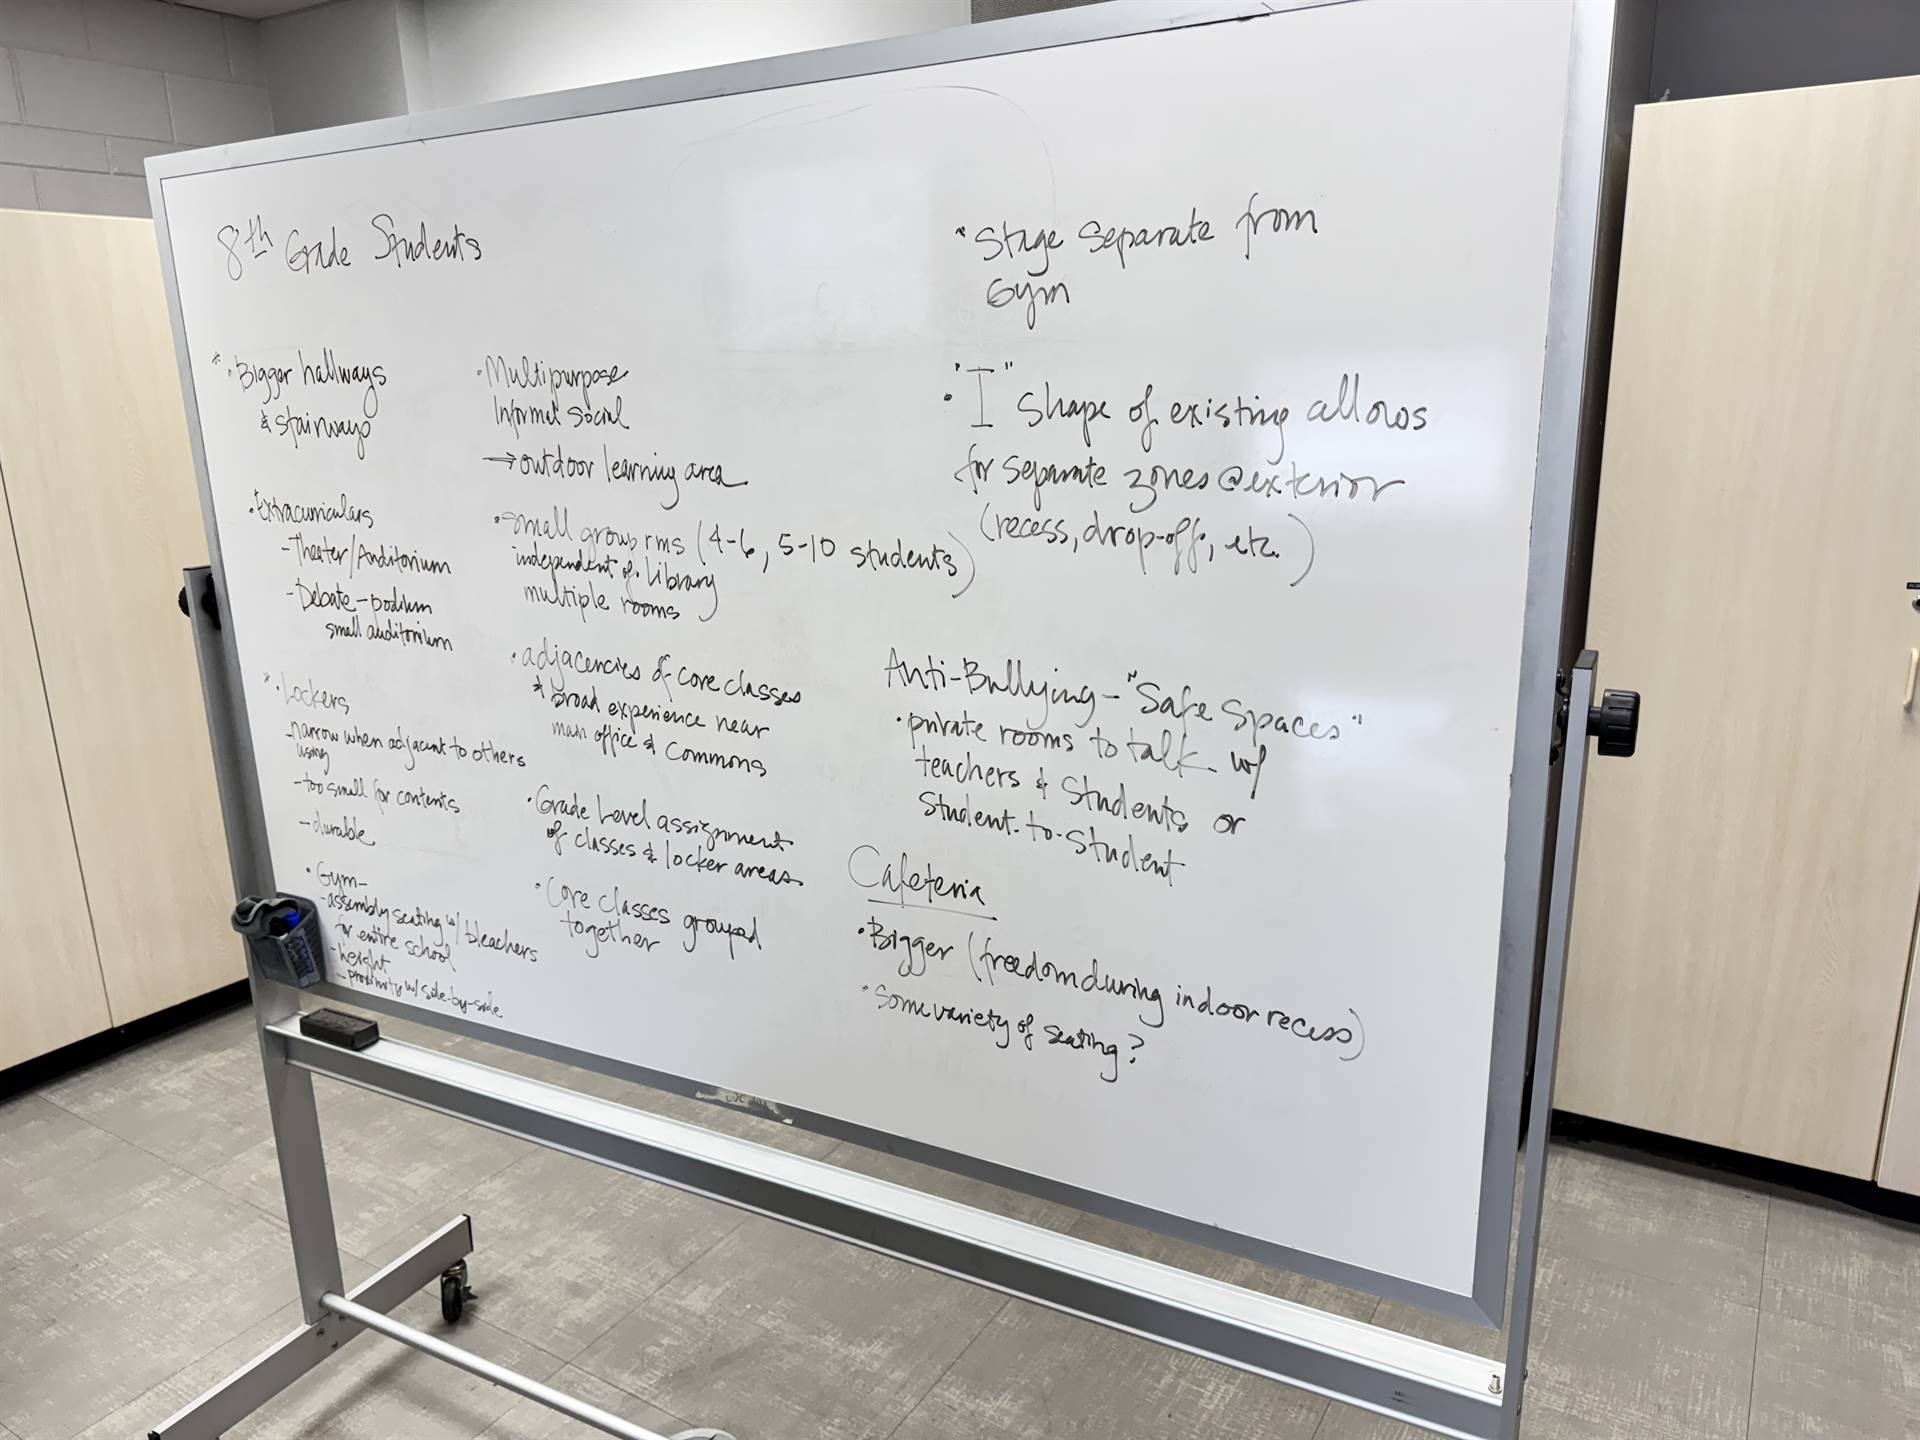 8th Grade Students
* • Bigger hallways
& stairways
• Extracurriculars
- Theater/Auditorium
- Debate - podium
small auditorium
* • Lockers
- narrow when adjacent to others
using
- too small for contents
- durable
• Gym -
- assembly seating w/ bleachers
for entire school
- height
- proximity w/ side-by-side
• Multipurpose
Informal social
→ outdoor learning area
• small group rms (4-6, 5-10 students)
independent of library
multiple rooms
• adjacencies of core classes
& broad experience near
main office & Commons
• Grade Level assignment
of classes & locker areas
• Core classes grouped
together
• Stage separate from
Gym
• "I" shape of existing allows
for separate zones @ exterior
(recess, drop-off, etc.)
Anti-Bullying - "Safe Spaces"
• private rooms to talk w/
teachers & students or
student-to-student
Cafeteria
• Bigger (freedom during indoor recess)
• Some variety of seating?